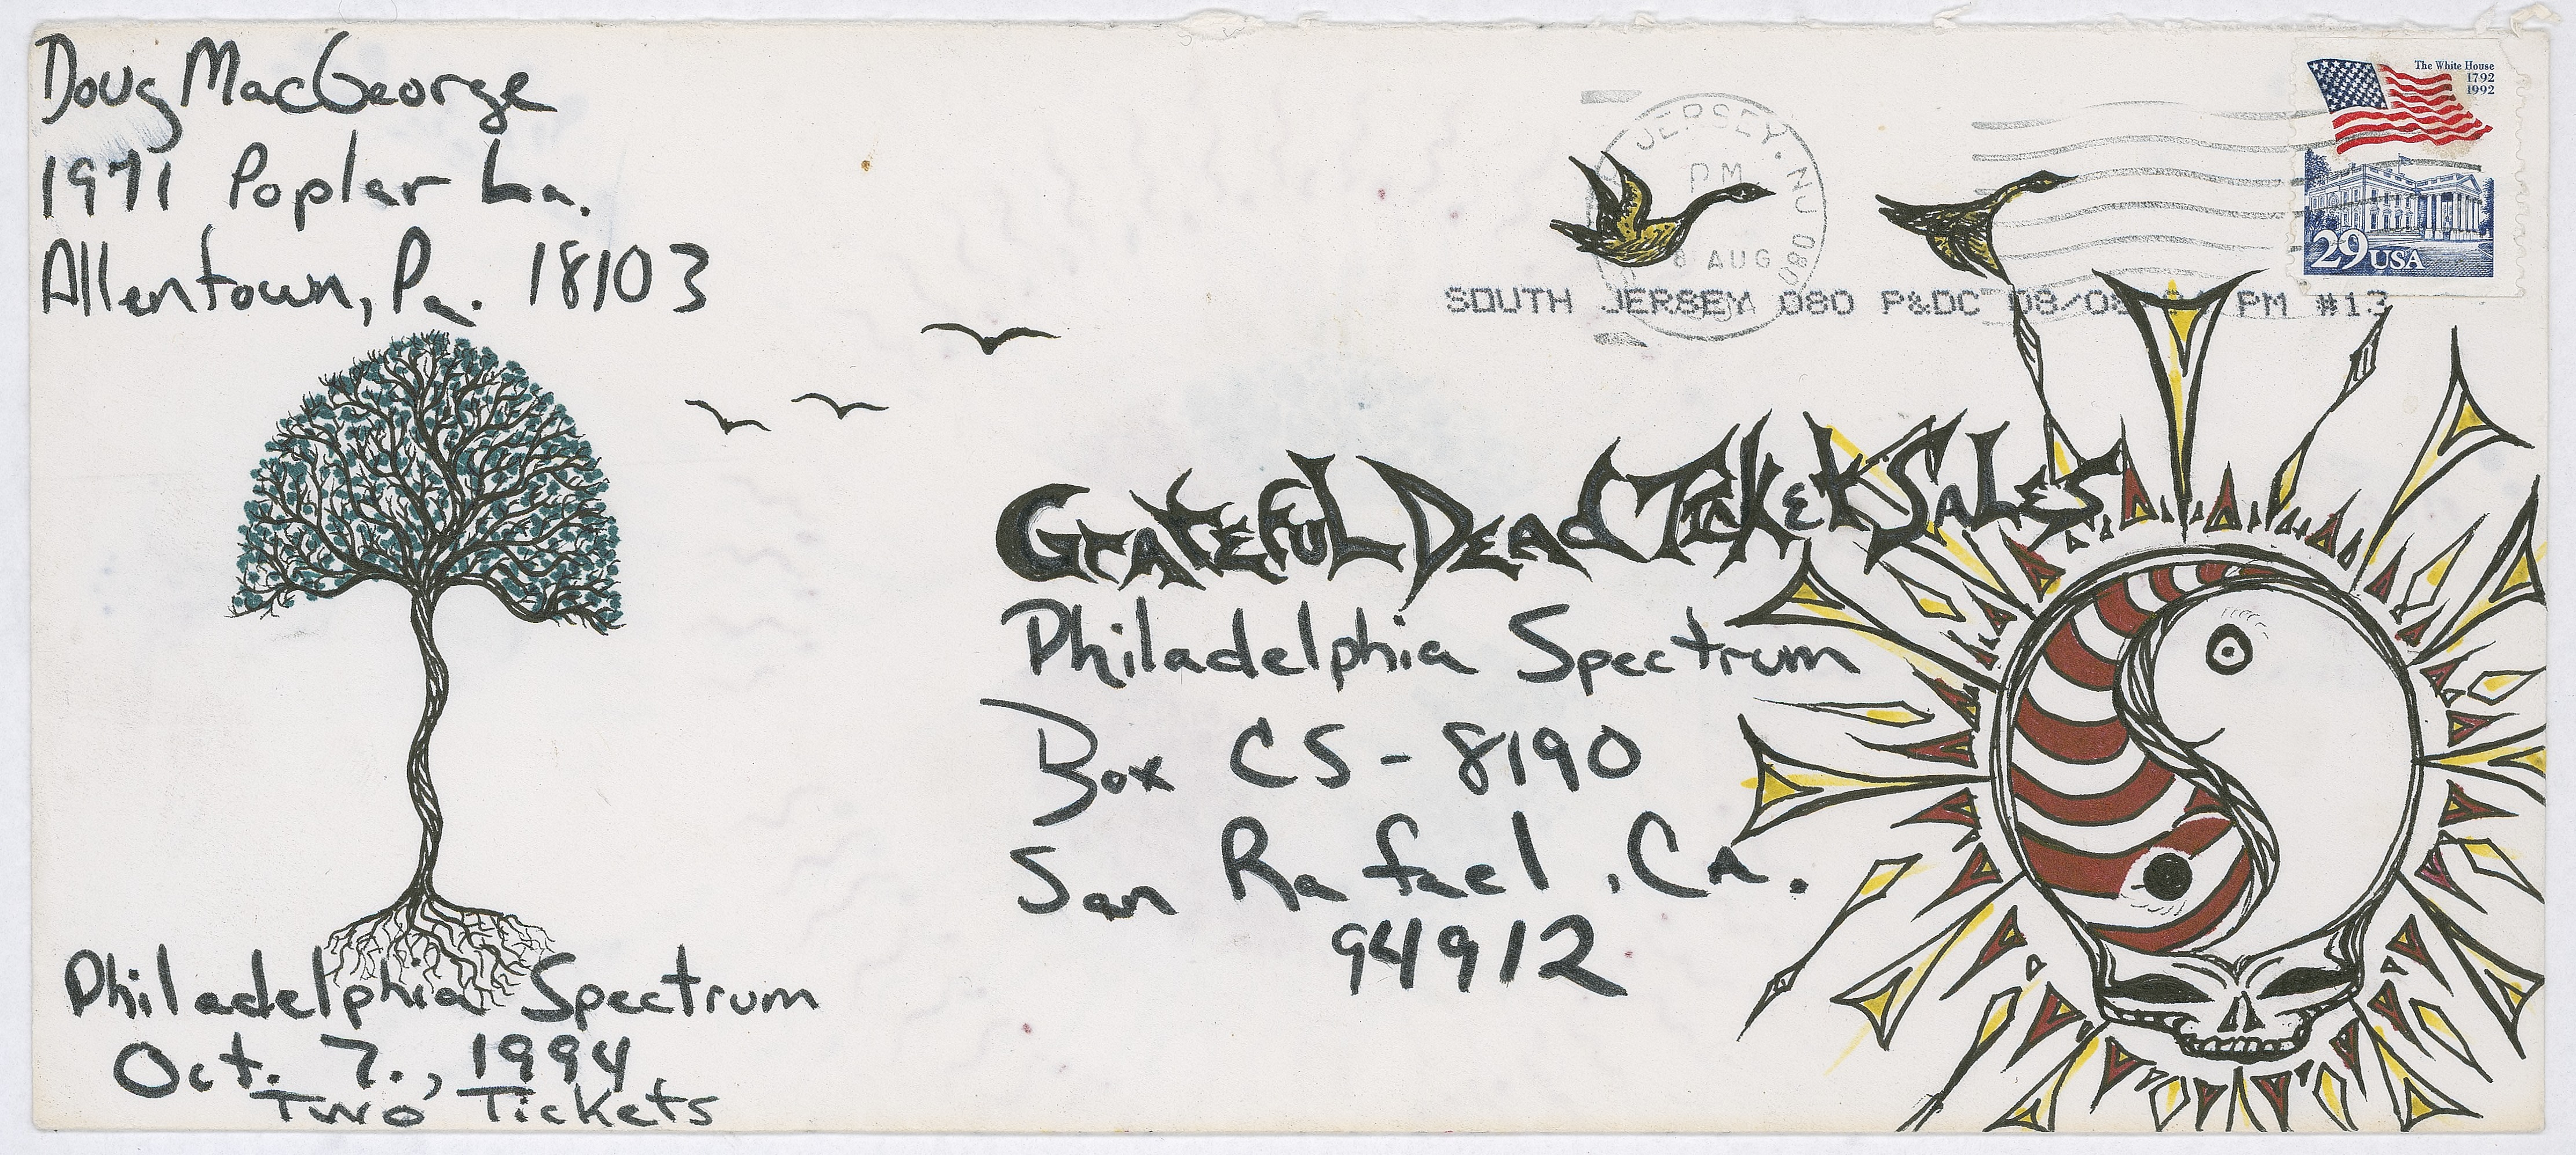 Doug MacGeorge
1971 Poplar La.
Allentown, Pa. 18103
The White House
1792
1992
29 USA
JERSEY, NJ 080
PM
8 AUG
SOUTH JERSEY 080 P&DC 08/08 PM #13
GrateFul Dead Ticket Sales
Philadelphia Spectrum
Box CS-8190
San Rafael, Ca.
94912
Philadelphia Spectrum
Oct. 7., 1994
Two Tickets